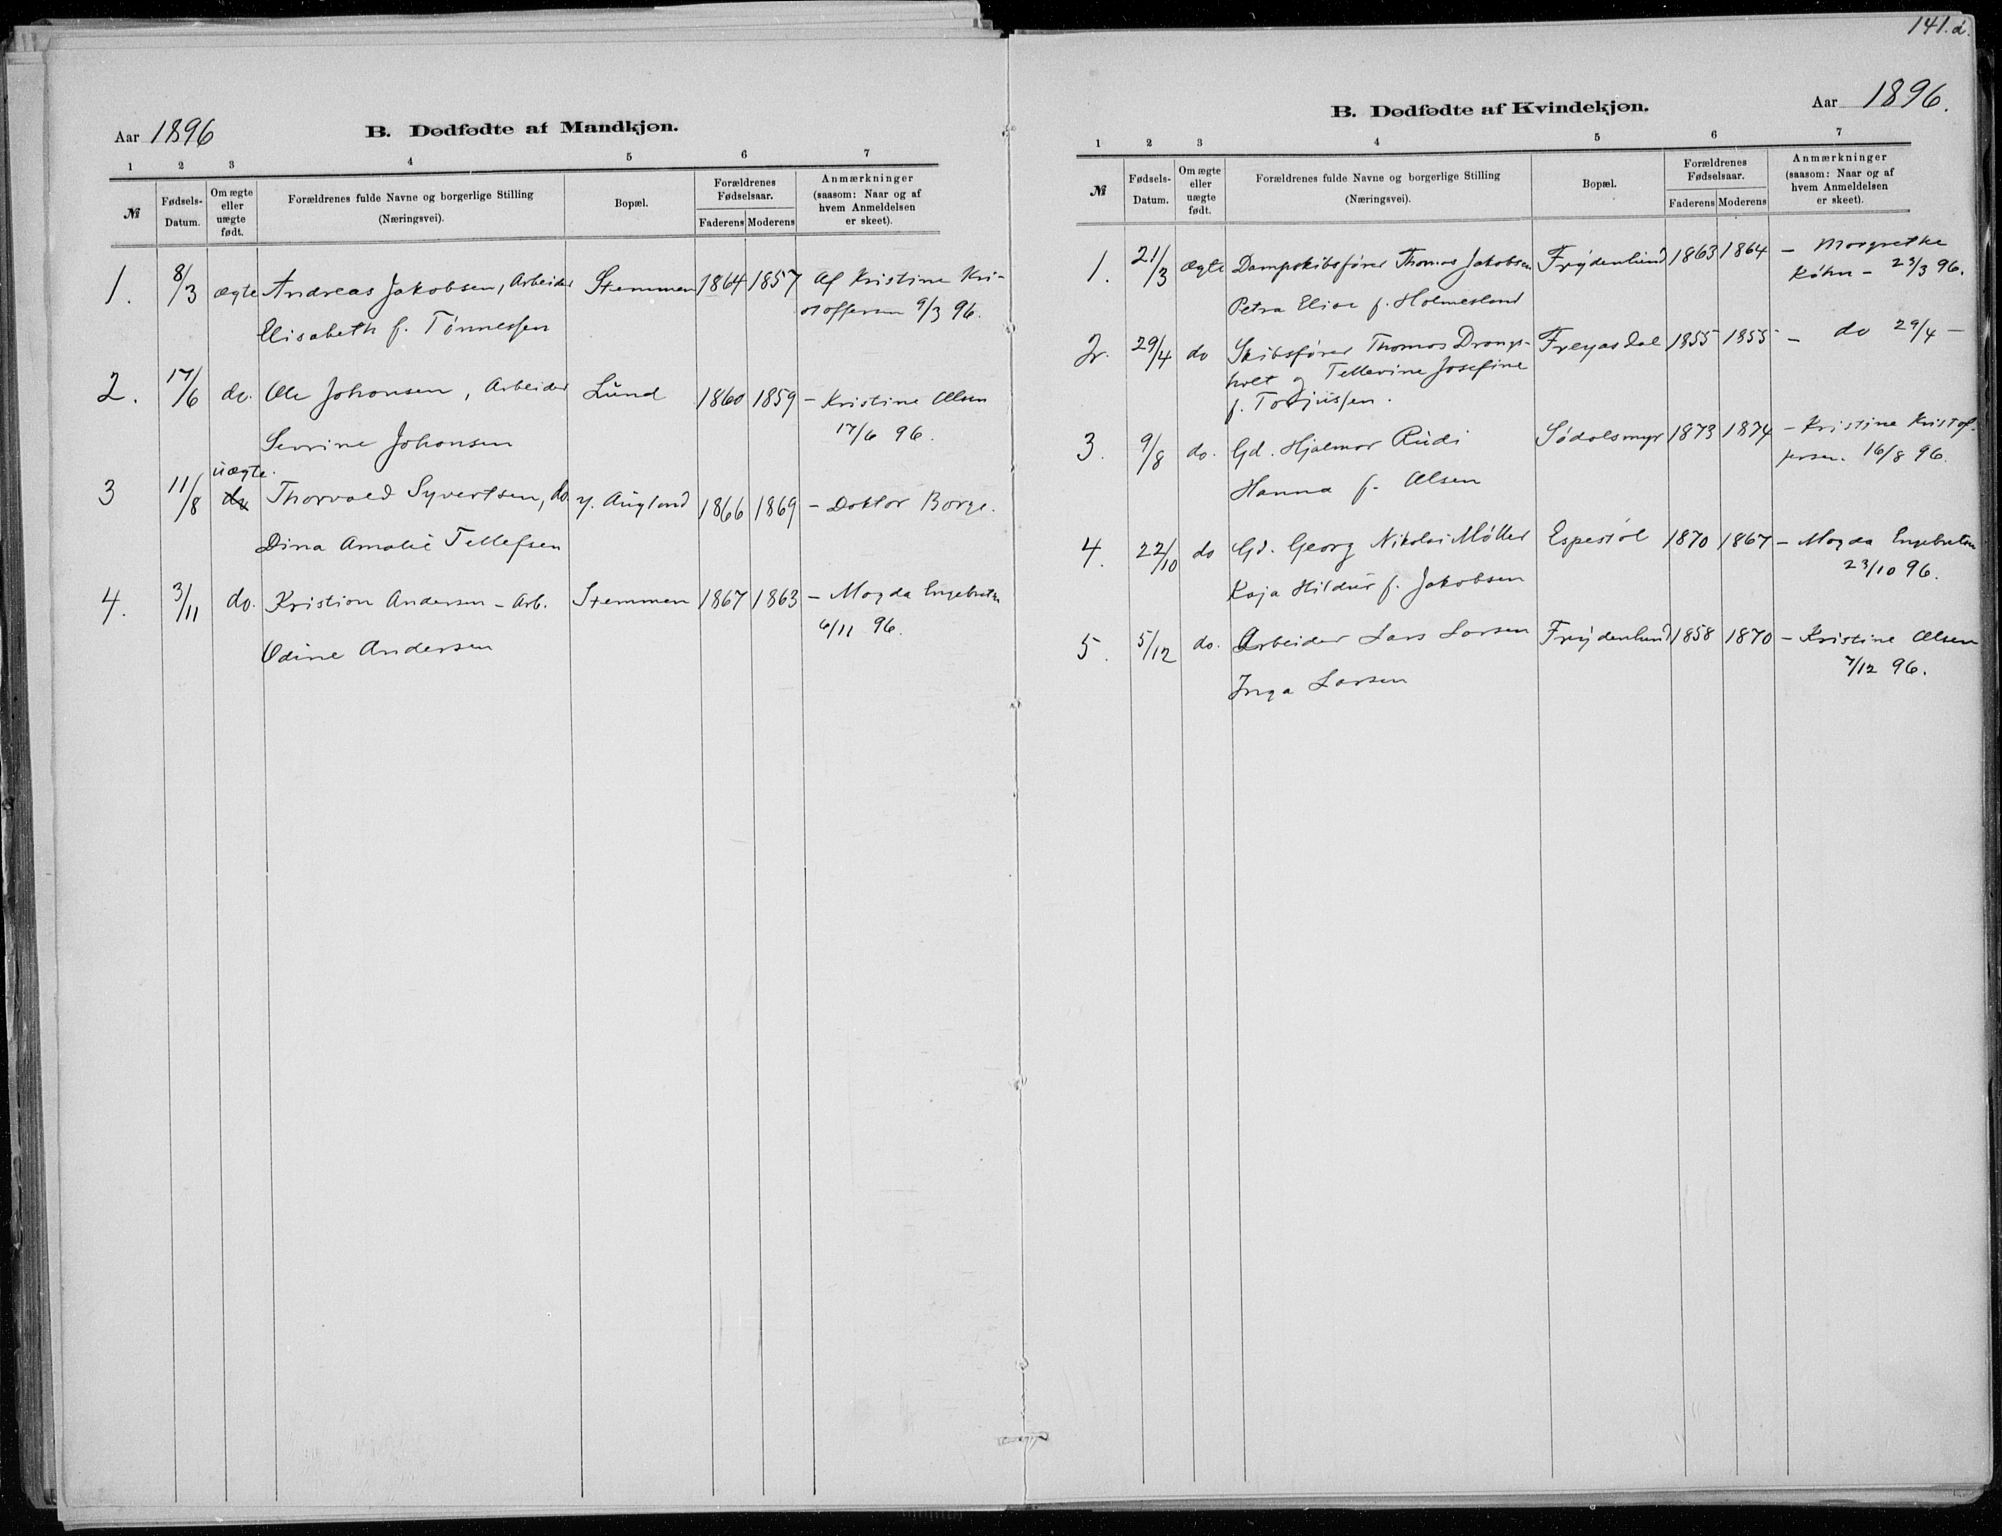 141.d.
Aar 1896
B. Dødfødte af Mandkjøn.
1 2 3 4 5 6 7
№
Fødsels-
Datum.
Om ægte
eller
uægte
født.
Forældrenes fulde Navne og borgerlige Stilling
(Næringsvei).
Bopæl.
Forældrenes
Fødselsaar.
Faderens Moderens
Anmærkninger
(saasom: Naar og af
hvem Anmeldelsen
er skeet).
1. 8/3 ægte Andreas Jakobsen, Arbeider Stemmen 1864 1857 Af Kristine Kri-
Elisabeth f. Tønnessen stoffersen 9/3 96.
2. 17/6 do. Ole Johansen, Arbeider Lund 1860 1859 – Kristine Olsen
Sevrine Johansen 17/6 96.
uægte.
3 11/8 do Thorvald Syvertsen, do y. Augland 1866 1869 – Doktor Borge.
Dina Amalie Tellefsen
4. 3/11 do. Kristian Andersen – Arb. Stemmen 1867 1863 – Magda Engebretsen
Odine Andersen 6/11 96.
B. Dødfødte af Kvindekjøn.
Aar 1896.
1 2 3 4 5 6 7
№
Fødsels-
Datum.
Om ægte
eller
uægte
født.
Forældrenes fulde Navne og borgerlige Stilling
(Næringsvei).
Bopæl.
Forældrenes
Fødselsaar.
Faderens Moderens
Anmærkninger
(saasom: Naar og af
hvem Anmeldelsen
er skeet).
1. 21/3 ægte Dampskibsfører Thomas Jakobsen Frydenlund 1863 1864 – Margrethe
Petra Elise f. Holmesland Køhn – 23/3 96.
2. 29/4 do Skibsfører Thomas Drangs- Freyasdal 1855 1855 – do 29/4 –
holt og Tellevine Josefine
f. Torjussen.
3. 9/8 do. Gd. Hjalmar Rudi Sødalsmyr 1873 1874 – Kristine Kristof-
Hanna f. Olsen fersen. 16/8 96.
4. 22/10 do Gd. Georg Nikolai Møller Espestøl 1870 1867 – Magda Engebretsen
Kaja Hildur f. Jakobsen 23/10 96.
5. 5/12 do. Arbeider Lars Larsen Frydenlund 1858 1870 – Kristine Olsen
Inga Larsen 7/12 96.